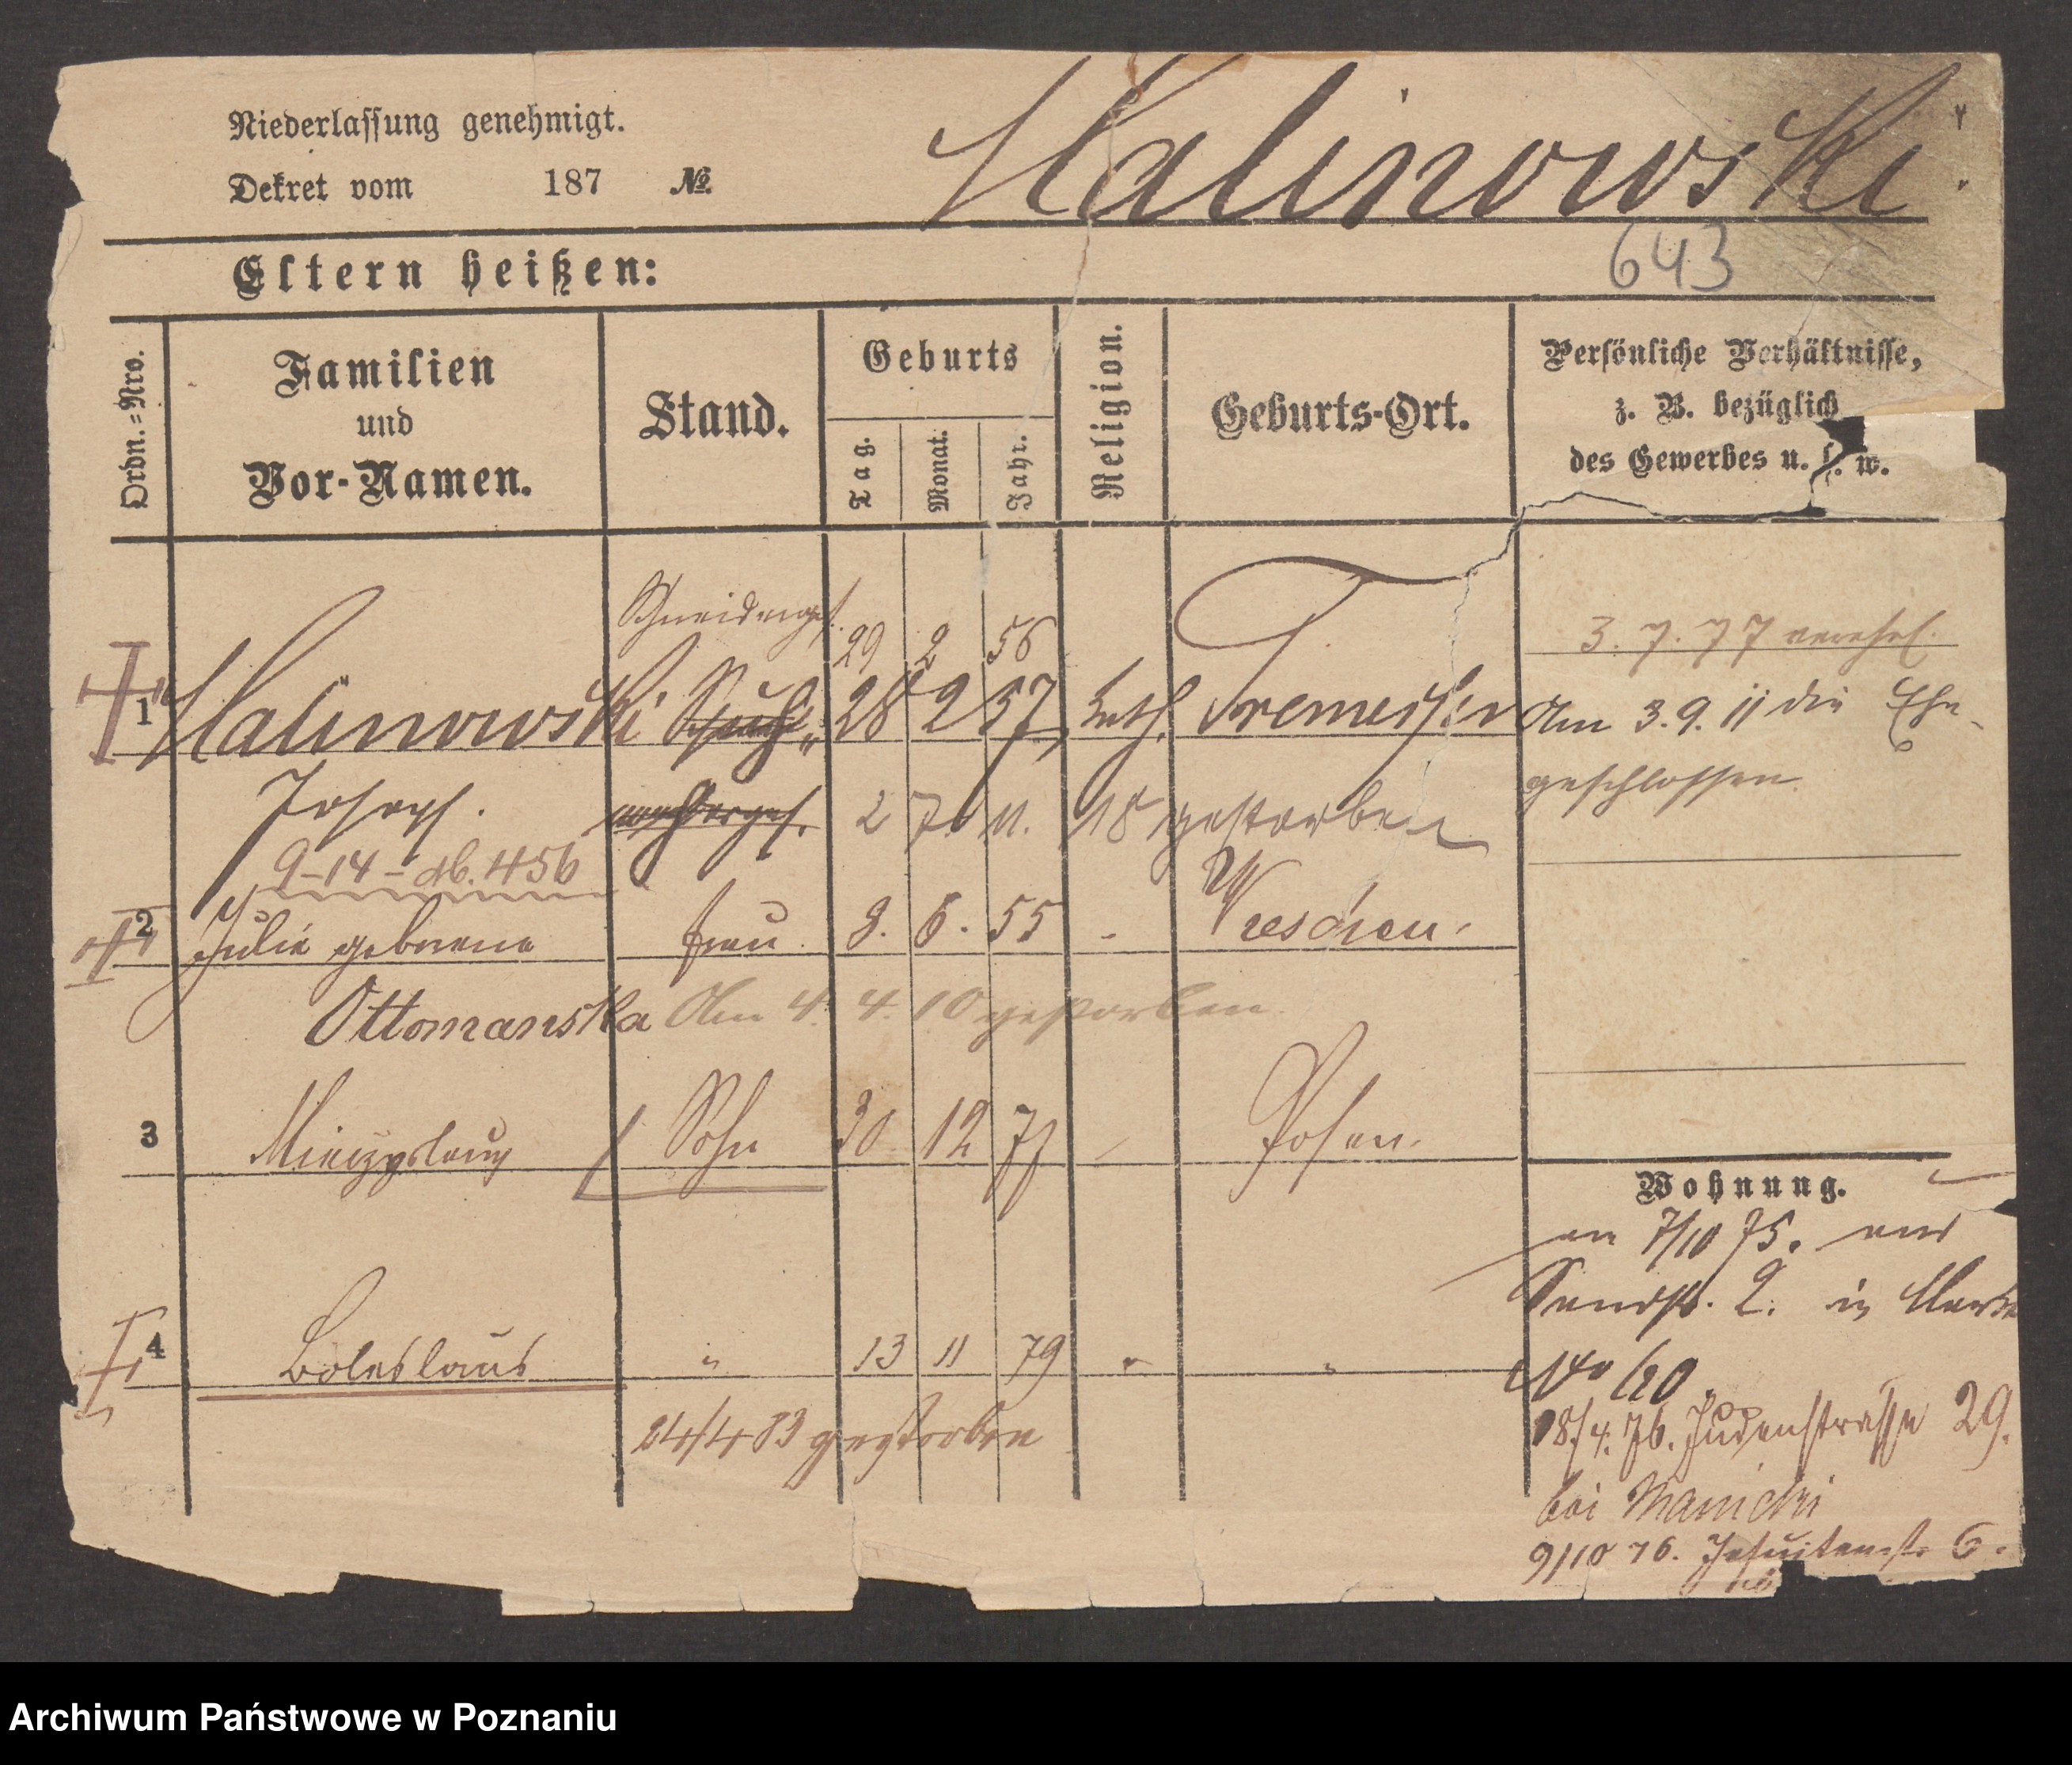 Niederlassung genehmigt.
Dekret vom 187 №
Kalinowski
643
Eltern heißen:
Ordn.=Nro.
Familien
und
Vor-Namen.
Stand.
Geburts
Tag.
Monat.
Jahr.
Religion.
Geburts-Ort.
Persönliche Verhältnisse,
z. B. bezüglich
des Gewerbes u. s. w.
Schneiderges.
29 2 56
3. 7. 77 verehel.
1 Kalinowski 28 2 57 kath. Tremessen
Am 3. 9. 11 die Ehe
geschlossen.
Joseph. 2 7. 11. 18 gestorben
9-14- 456
2 Julie geborene Frau. 3. 6. 55 - Wreschen.
Ottomanska Am 4. 4. 10 gestorben
3 Mieczyslaus Sohn 30 12 77 Posen.
Wohnung.
7/10 75.
Sandstr. 2. in
No
4 Boleslaus " 13 11 79 " "
24/4 83 gestorben
18/4. 76. Judenstrasse 29.
bei Manicki
9/10 76. Jesuitenstr. 6.
Archiwum Państwowe w Poznaniu